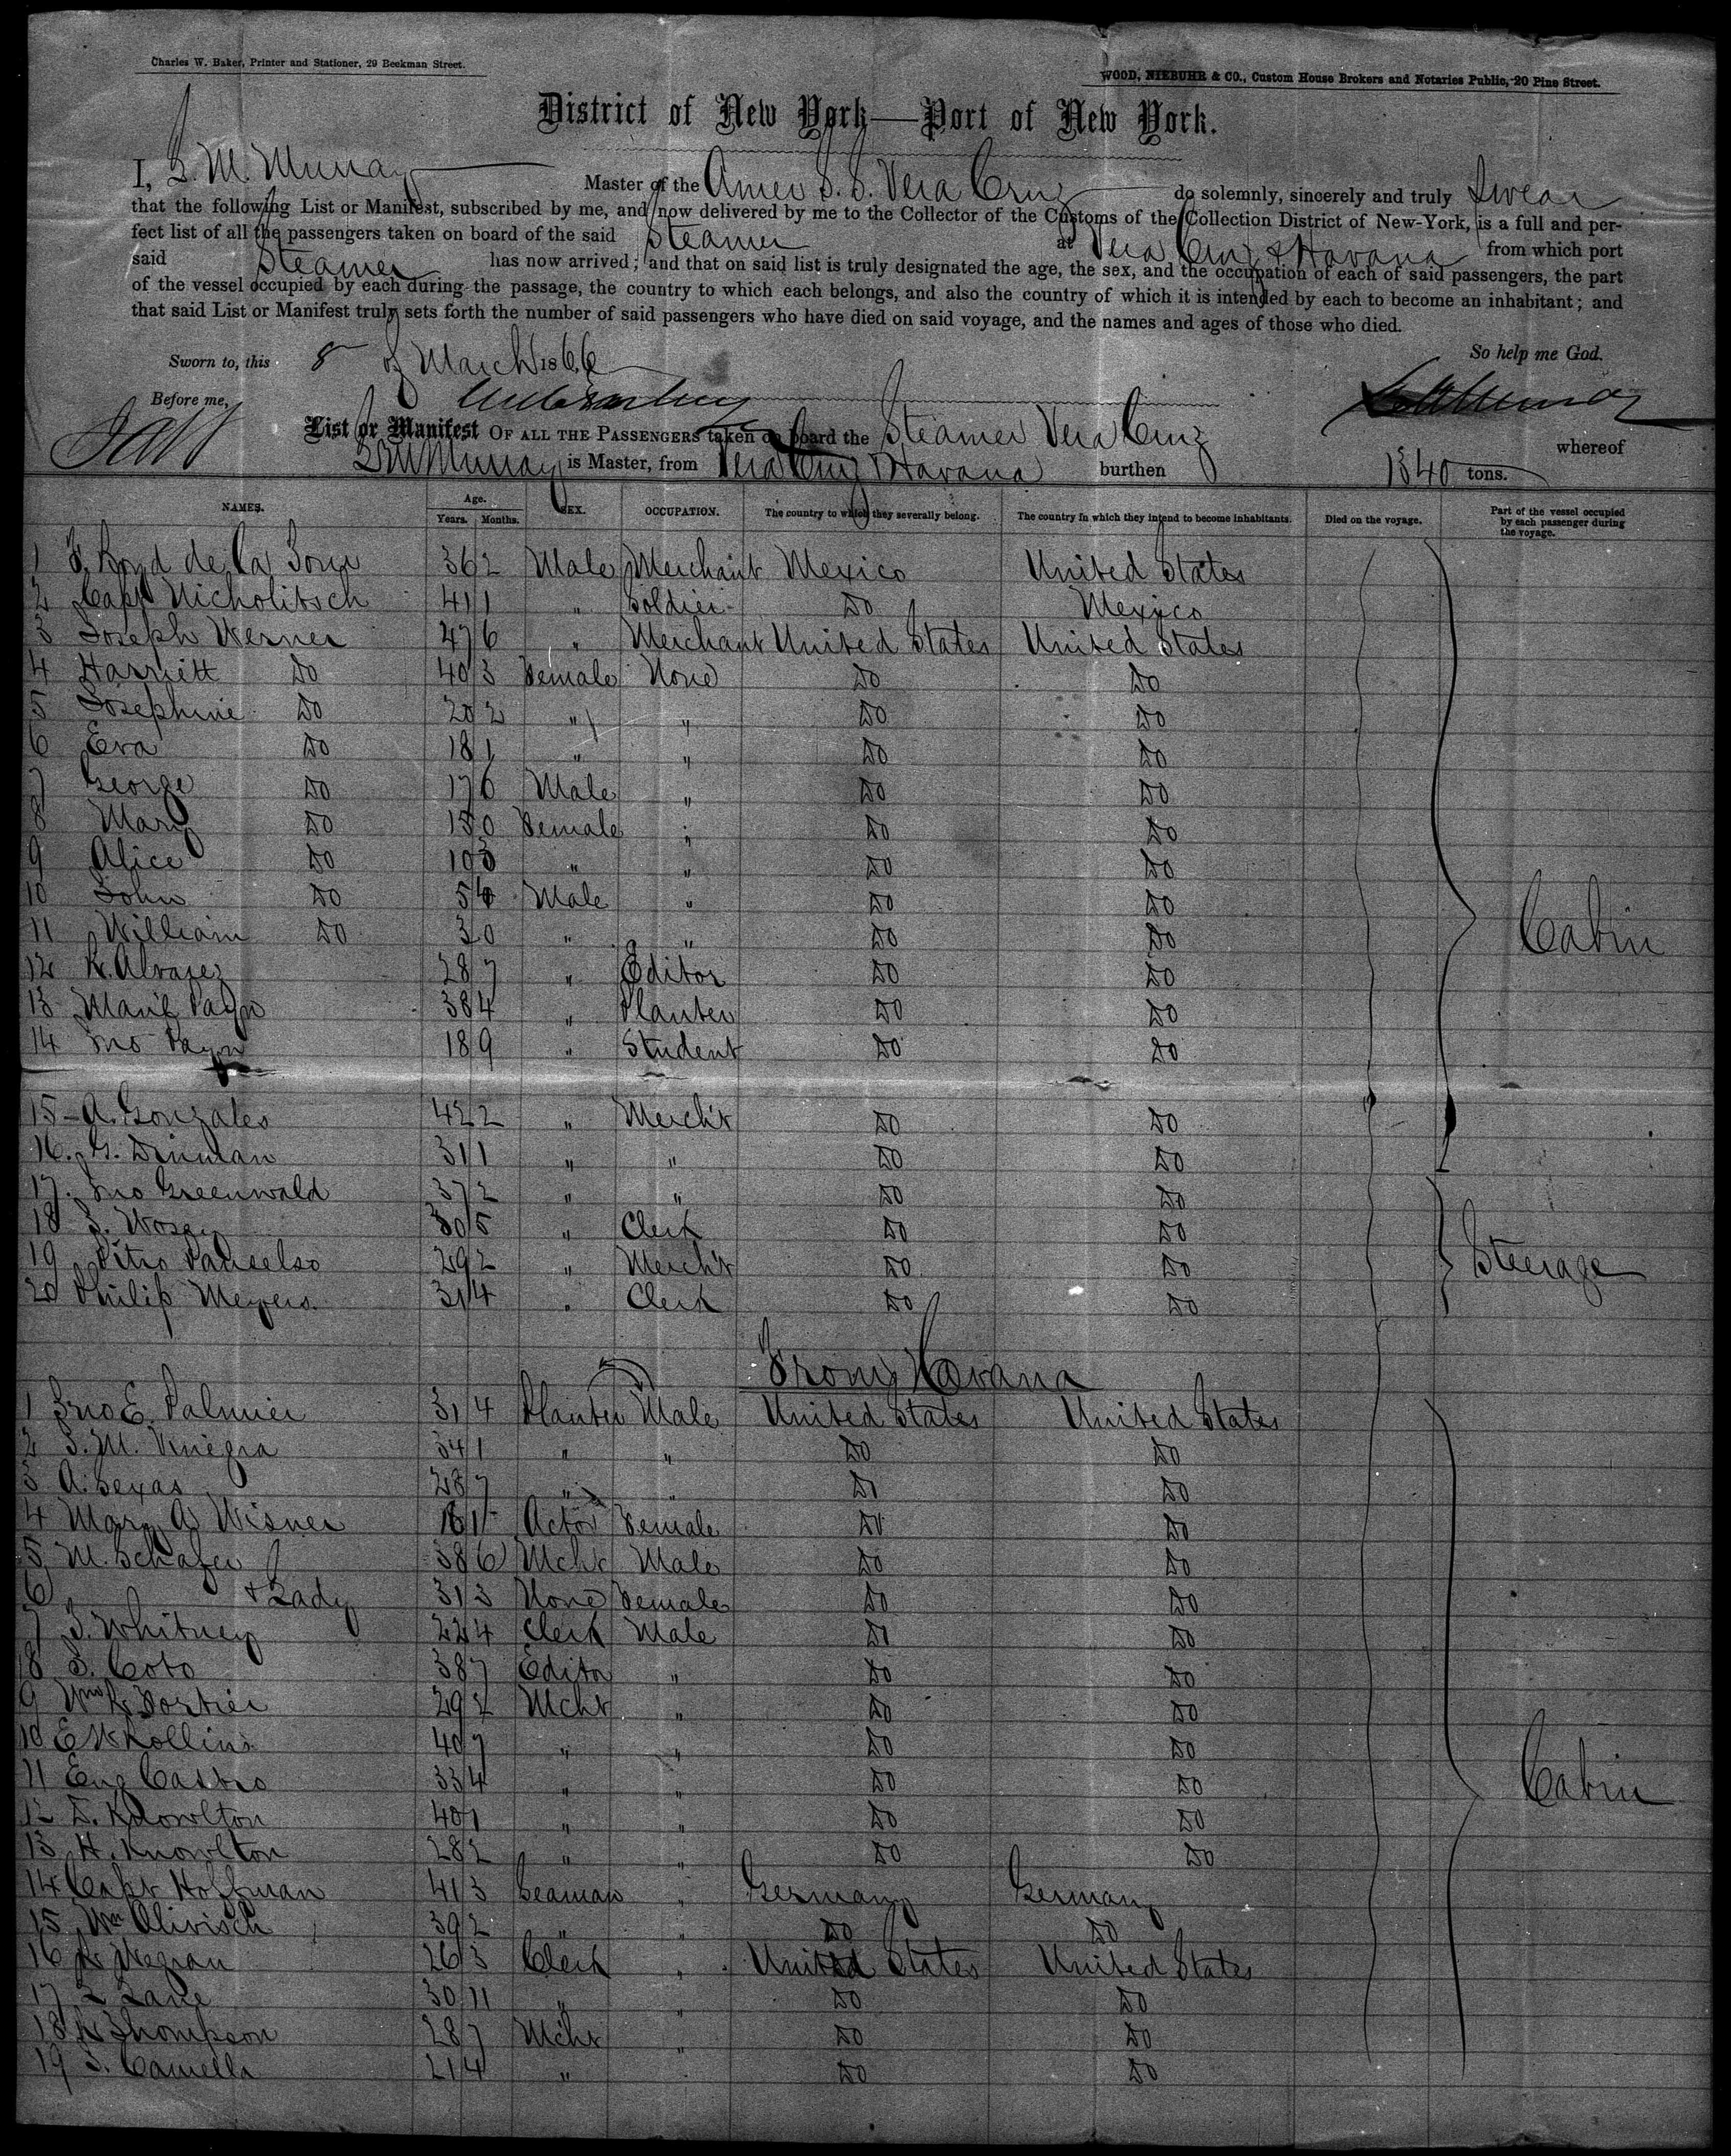 Charles W. Baker, Printer and Stationer, 29 Beekman Street.
WOOD, NIEBUHR & CO., Custom House Brokers and Notaries Public, 20 Pine Street.
District of New York—Port of New York.
I, S. M. Murray Master of the Amer S. S. Vera Cruz do solemnly, sincerely and truly swear
that the following List or Manifest, subscribed by me, and now delivered by me to the Collector of the Customs of the Collection District of New-York, is a full and per-
fect list of all the passengers taken on board of the said Steamer at Vera Cruz & Havana from which port
said Steamer has now arrived; and that on said list is truly designated the age, the sex, and the occupation of each of said passengers, the part
of the vessel occupied by each during the passage, the country to which each belongs, and also the country of which it is intended by each to become an inhabitant; and
that said List or Manifest truly sets forth the number of said passengers who have died on said voyage, and the names and ages of those who died.
So help me God.
Sworn to, this 8 of March 1866
Before me,
List or Manifest OF ALL THE PASSENGERS taken on board the Steamer Vera Cruz whereof
Murray is Master, from Vera Cruz & Havana burthen 1340 tons.
NAMES. Age. Years. Months. SEX. OCCUPATION. The country to which they severally belong. The country in which they intend to become inhabitants. Died on the voyage. Part of the vessel occupied by each passenger during the voyage.
1 de La 36 2 Male Merchant Mexico United States
2 Capt Nicholitsch 41 1 " Soldier Do Mexico
3 Joseph Werner 47 6 " Merchant United States United States
4 Harriett Do 40 3 Female None Do Do
5 Josephine Do 20 2 " " Do Do
6 Eva Do 18 1 " " Do Do
7 George Do 17 6 Male " Do Do
8 Mary Do 15 0 Female " Do Do
9 Alice Do 10 " " Do Do
10 John Do 5 Male " Do Do
11 William Do 3 0 " " Do Do
Cabin
12 R. Alvarez 28 7 " Editor Do Do
13 Payn 38 4 " Planter Do Do
14 Jno Payn 18 9 " Student Do Do
15 A. Gonzales 42 2 " Mercht Do Do
16 G. Dinman 31 1 " " Do Do
17 Jno Greenwald 37 2 " " Do Do
18 30 5 " Clerk Do Do
19 Pitro 29 2 " Mercht Do Do
Steerage
20 Philip Meyers 31 4 " Clerk Do Do
From Havana
1 Jno E. Palmer 31 4 Planter Male United States United States
2 34 1 " " Do Do
3 A. Sexas 28 7 " " Do Do
4 Mary A Wisner Actor Female Do Do
5 M. Schafer 38 6 Mcht Male Do Do
6 & Lady 31 3 None Female Do Do
7 Whitney 22 4 Clerk Male Do Do
8 Coto 38 7 Editor " Do Do
9 Wm R Fortier 29 2 Mcht " Do Do
10 E K Collins 40 7 " " Do Do
11 Eug Castro 33 4 " " Do Do
Cabin
12 D. Knowlton 40 1 " " Do Do
13 H. Knowlton 28 2 " " Do Do
14 Capt Hoffman 41 3 Seaman " Germany Germany
15 Wm Olivisch 39 2 " " Do Do
16 26 3 Clerk " United States United States
17 L Lane 30 11 " " Do Do
18 Thompson 28 7 Mcht " Do Do
19 21 4 " Do Do